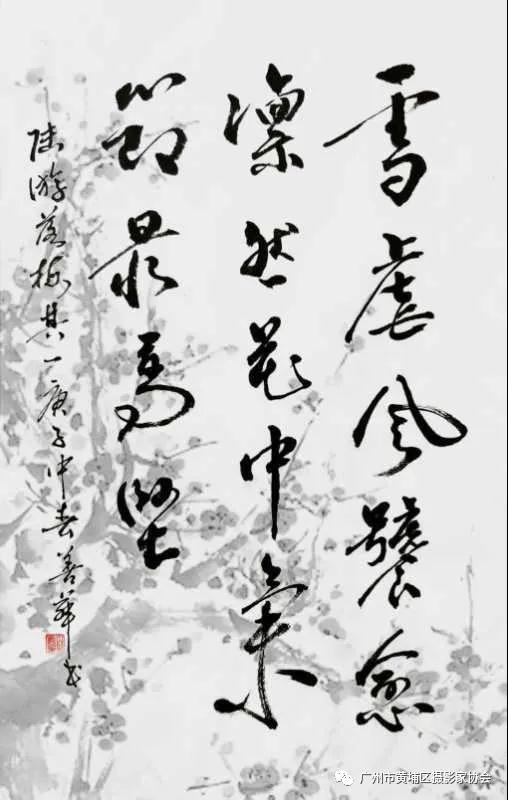 雪虐風饕愈
凛然花中氣
節最高堅
陆游落梅其一庚子中春善華书
广州市黄埔区摄影家协会